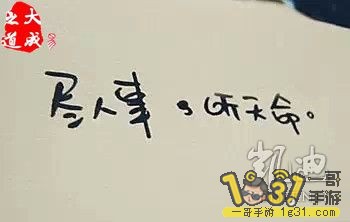 大成
之道
尽人事，听天命。
凯迪
1931 一哥
手游
一哥手游 1g31.com